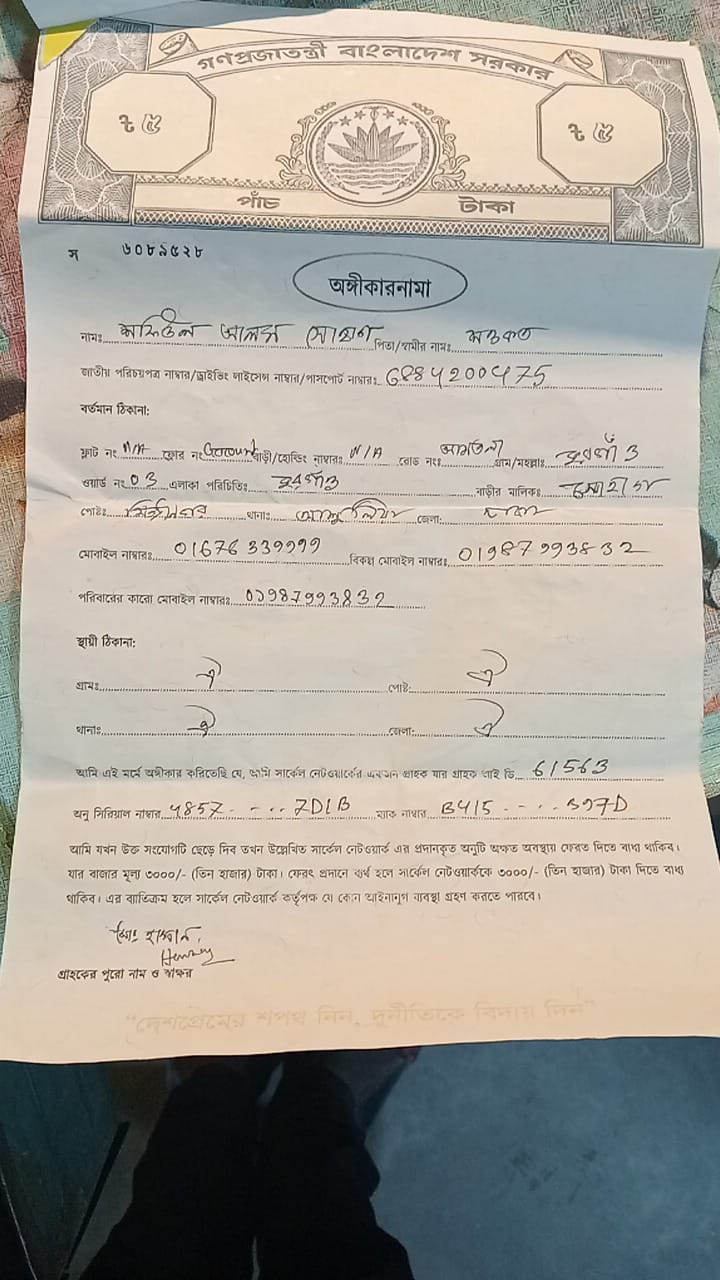 গণপ্রজাতন্ত্রী বাংলাদেশ সরকার
৳ ৫ ৳ ৫
পাঁচ টাকা
স ৬০৮৯৫২৮
অঙ্গীকারনামা
নামঃ আলম সোহাগ পিতা/স্বামীর নামঃ
জাতীয় পরিচয়পত্র নাম্বার/ড্রাইভিং লাইসেন্স নাম্বার/পাসপোর্ট নাম্বারঃ 6884200475
বর্তমান ঠিকানা:
ফ্লাট নং N/A ফ্লোর নং Ground বাড়ী/হোল্ডিং নাম্বারঃ N/A রোড নংঃ আমতলা গ্রাম/মহল্লাঃ
ওয়ার্ড নং 03 এলাকা পরিচিতিঃ বাড়ীর মালিকঃ সোহাগ
পোষ্টঃ থানাঃ আশুলিয়া জেলা: ঢাকা
মোবাইল নাম্বারঃ 01676339999 বিকল্প মোবাইল নাম্বারঃ 01987993832
পরিবারের কারো মোবাইল নাম্বারঃ 01987993832
স্থায়ী ঠিকানা:
গ্রামঃ ঐ পোষ্ট: ঐ
থানাঃ ঐ জেলা: ঐ
আমি এই মর্মে অঙ্গীকার করিতেছি যে, আমি সার্কেল নেটওয়ার্কের একজন গ্রাহক যার গ্রাহক আই ডি 61563
অনু সিরিয়াল নাম্বার 4857-....7D1B ম্যাক নাম্বার B415-....B97D
আমি যখন উক্ত সংযোগটি ছেড়ে দিব তখন উল্লেখিত সার্কেল নেটওয়ার্ক এর প্রদানকৃত অনুটি অক্ষত অবস্থায় ফেরত দিতে বাধ্য থাকিব।
যার বাজার মূল্য ৩০০০/- (তিন হাজার) টাকা। ফেরৎ প্রদানে ব্যর্থ হলে সার্কেল নেটওয়ার্ককে ৩০০০/- (তিন হাজার) টাকা দিতে বাধ্য
থাকিব। এর ব্যতিক্রম হলে সার্কেল নেটওয়ার্ক কর্তৃপক্ষ যে কোন আইনানুগ ব্যবস্থা গ্রহণ করতে পারবে।
মোঃ হাসান
গ্রাহকের পুরো নাম ও স্বাক্ষর
"দেশপ্রেমের শপথ নিন, দুর্নীতিকে বিদায় দিন"